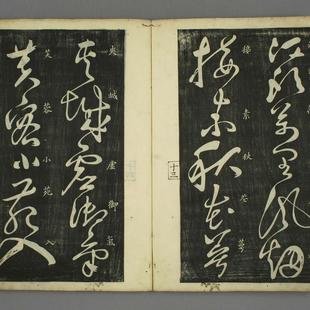 江頭萬里風烟
接素秋花萼
接素秋花萼
十三
夾城虛御氣
夾城虛御氣
芙蓉小苑入
芙蓉小苑入